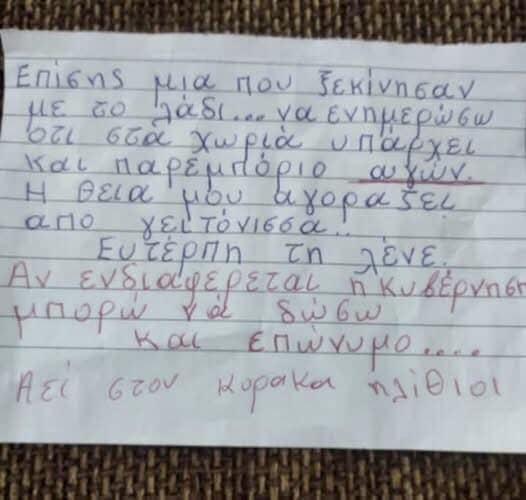 Επίσης μια που ξεκίνησαν
με το λάδι... να ενημερώσω
οτι στα χωριά υπάρχει
και παρεμπόριο αυγών.
Η θεια μου αγοράζει
απο γειτόνισσα..
Ευτέρπη τη λένε.
Αν ενδιαφέρεται η κυβέρνηση
μπορώ να δώσω
και επώνυμο....
Αει στον κορακα ηλίθιοι